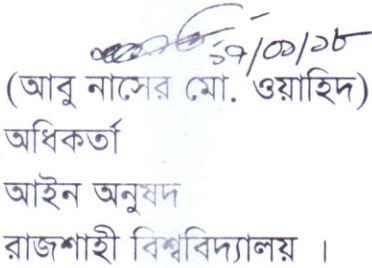 ১৭/০১/১৮
(আবু নাসের মো. ওয়াহিদ)
অধিকর্তা
আইন অনুষদ
রাজশাহী বিশ্ববিদ্যালয় ।